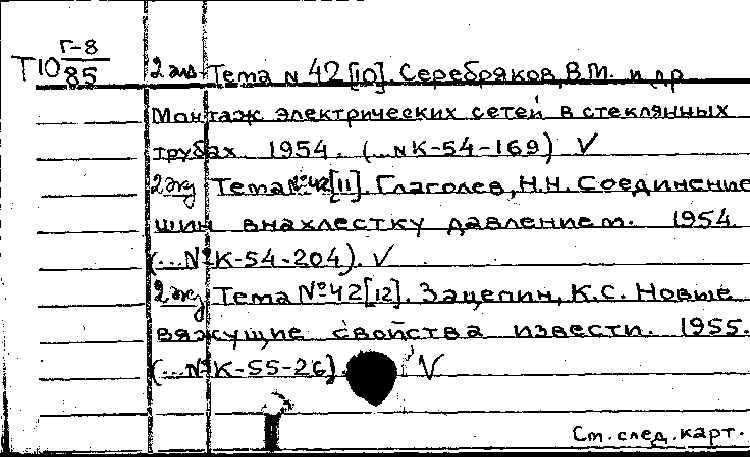 Т10 Г-8/85
2 экз Тема № 42 [10]. Серебряков, В.М. и др
Монтаж электрических сетей в стеклянных
трубах. 1954. (...№К-54-169) ✓
2 экз Тема №42[11]. Глаголев, Н.Н. Соединение
шин внахлестку давлением. 1954.
(...№К-54-204). ✓
2 экз Тема №42[12]. Зацепин, К.С. Новые
вяжущие свойства извести. 1955.
(...№К-55-26). ✓
См. след. карт.